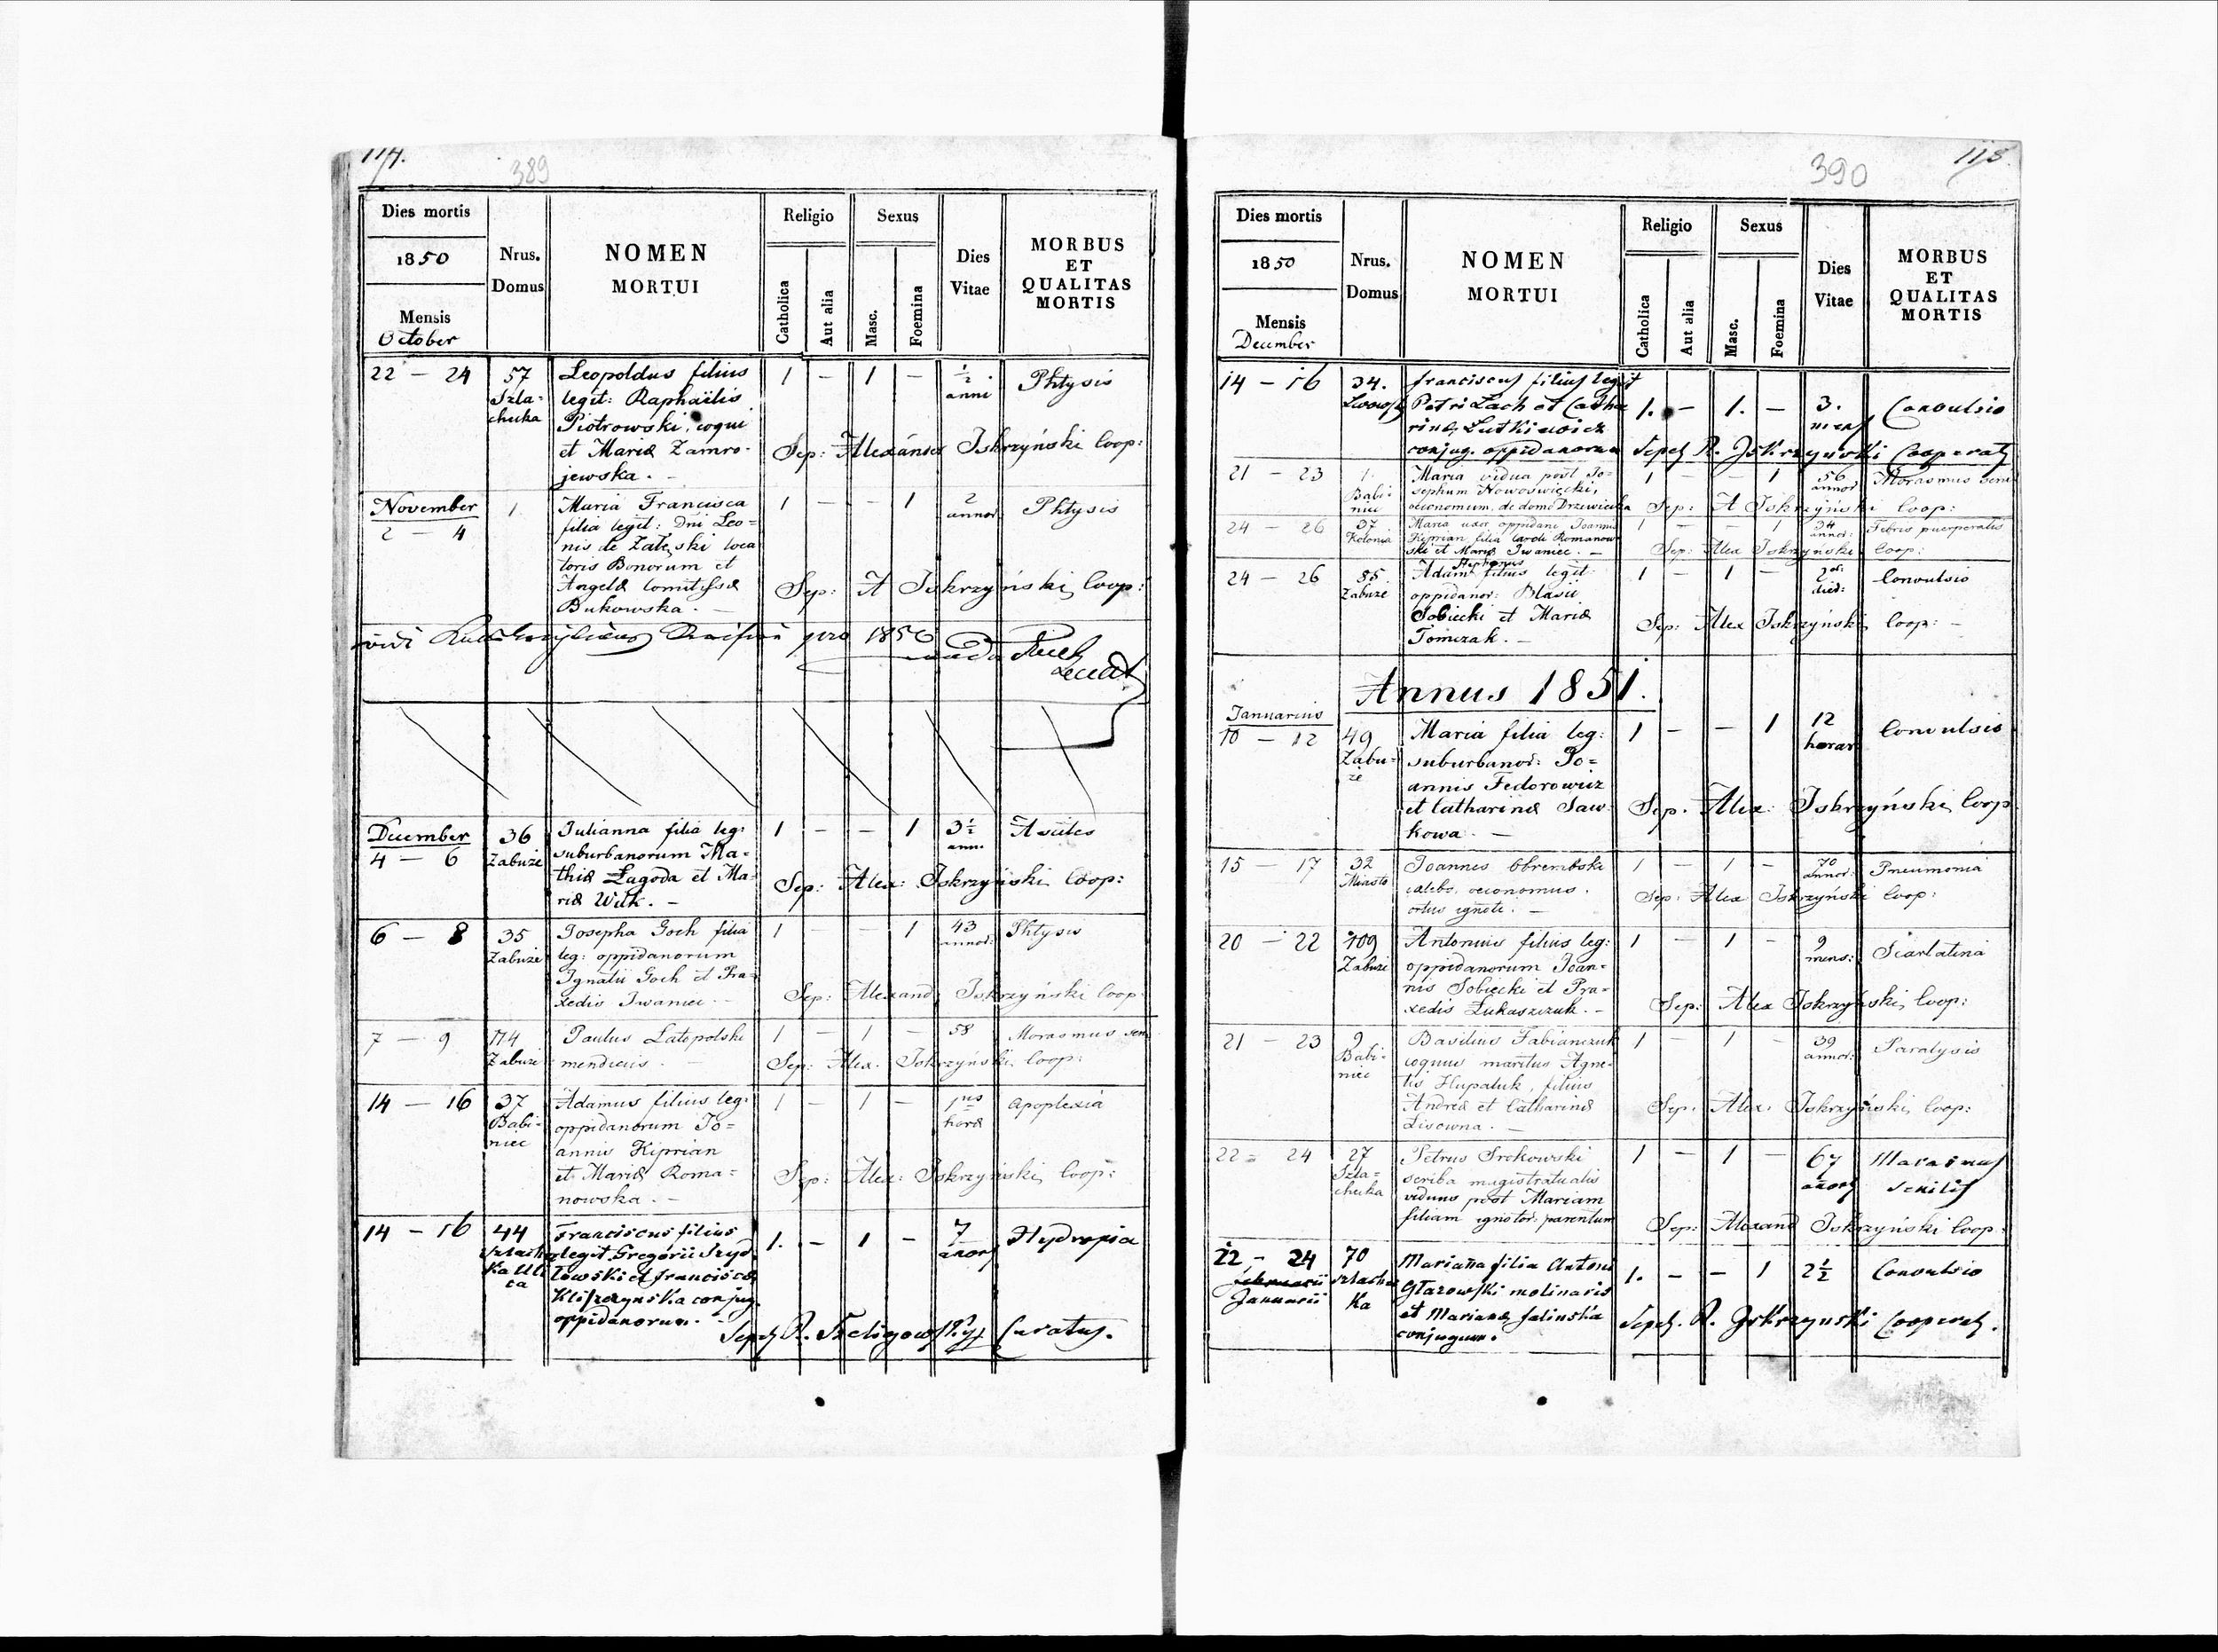 114.
389
Dies mortis
1850
Mensis
October
Nrus.
Domus
NOMEN
MORTUI
Religio
Catholica
Aut alia
Sexus
Masc.
Foemina
Dies
Vitae
MORBUS
ET
QUALITAS
MORTIS
22 — 24
57
Szla-
checka
Leopoldus filius
legit: Raphaëlis
Piotrowski, coqui
et Mariæ Zamro-
jewska. —
1 — 1 —
½
anni
Phtysis
Sep: Iskrzyński Coop:
November
2 — 4
1.
Maria Francisca
filia legit: Dni Leo=
nis de Załęski loca
toris Bonorum et
Angelæ Comitissæ
Bukowska. —
1 — — 1
2
annor
Phtysis
Sep: A Iskrzyński Coop:
vidi pro 1850
December
4 — 6
36
Zabuże
Julianna filia leg:
suburbanorum Ma=
thiæ Łagoda et Ma=
riæ Wilk. —
1 — — 1
3½
ann.
Ascites
Sep: Alex: Iskrzyński Coop:
6 — 8
35
Zabuże
Josepha Goch filia
leg: oppidanorum
Ignatii Goch et Pra=
xedis Iwaniec. —
1 — — 1
43
annor:
Phtysis
Sep: Alexand Iskrzyński Coop
7 — 9
114
Zabuże
Paulus Latopolski
mendicus. —
1 — 1 —
58
Morasmus sen
Sep: Alex. Iskrzyński Coop:
14 — 16
37
Babi-
niec
Adamus filius leg:
oppidanorum Jo=
annis Kiprian
et Mariæ Roma=
nowska. —
1 — 1 —
1us
horæ
Apoplexia
Sep: Alex: Iskrzyński Coop:
14 — 16
44
Szlach
Ka Uli
ca
Franciscus filius
legit. Gregórii Szyd
łowski et franciscæ
conjug.
oppidanorum.
1. — 1 —
7
anor
Hydropia
Sepel R. Curatus.
118.
390
Dies mortis
1850
Mensis
December
Nrus.
Domus
NOMEN
MORTUI
Religio
Catholica
Aut alia
Sexus
Masc.
Foemina
Dies
Vitae
MORBUS
ET
QUALITAS
MORTIS
14 — 16
34.
franciscus filius legit
Petri Lach et Catha
rinæ Lutkiewicz
conjug. oppidanorum
1. — 1. —
3.
mens
Convulsio
Sepel R. Jskrzynski Cooperat
21 — 23
1.
Babi-
niec
Maria vidua post Jo=
sephum Nowoświęcki,
oeconomum, de domo Drzewiecka
1 — — 1
56
annor
Morasmus seni
Sep: A Iskrzyński Coop:
24 — 26
37
Kolonia
Maria uxor oppidani Joannis
Kiprian filia Caroli Romanow
ski et Mariæ Iwaniec. —
1 — — 1
34
annor:
Febris puerperalis
Sep: Alex Iskrzyński Coop:
24 — 26
85
Zabuże
Stephanus
Adam filius legit
oppidanor: Blasii
Sobiecki et Mariæ
Tomczak. —
1 — 1 —
2
dier:
Convulsio
Sep: Alex Iskrzyński Coop: —
Annus 1851.
Januarius
10 — 12
49
Zabu-
że
Maria filia leg:
suburbanor: Jo=
annis Fedorowicz
et Catharinæ Saw
kowa. —
1 — — 1
12
horar
Convulsio
Sep. Alex: Iskrzyński Coop
15 — 17
32
Miasto
Joannes Obrembski
caelebs, oeconomus.
ortus ignoti. —
1 — 1 —
70
annor:
Pneumonia
Sep: Alex Iskrzyński Coop:
20 — 22
109
Zabuże
Antonius filius leg:
oppidanorum Joan=
nis Sobiecki et Pra=
xedis Łukaszczuk. —
1 — 1 —
9
mens:
Scarlatina
Sep: Alex Iskrzyński Coop:
21 — 23
9
Babi-
niec
Basilius Fabianczuk
coquus maritus Agne-
tis Hupaluk, filius
Andreæ et Catharinæ
Lisowna. —
1 — 1 —
39
annor:
Paralysis
Sep: Alex: Iskrzyński Coop:
22 = 24
27
Szla=
checka
Petrus Srokowski
scriba magistratualis
viduus post Mariam
filiam ignotor: parentum
1 — 1 —
67
anor
Marasmus
senilis
Sep: Alexand Iskrzyński Coop:
22 — 24
Februarii
Januarii
70
szlachec
Ka
Marianna filia Antoni
Głazowski molinaris
et Mariannæ Jalinska
conjugum.
1. — — 1
2½
Convulsio
Sepel. R. Jskrzynski Cooperat.